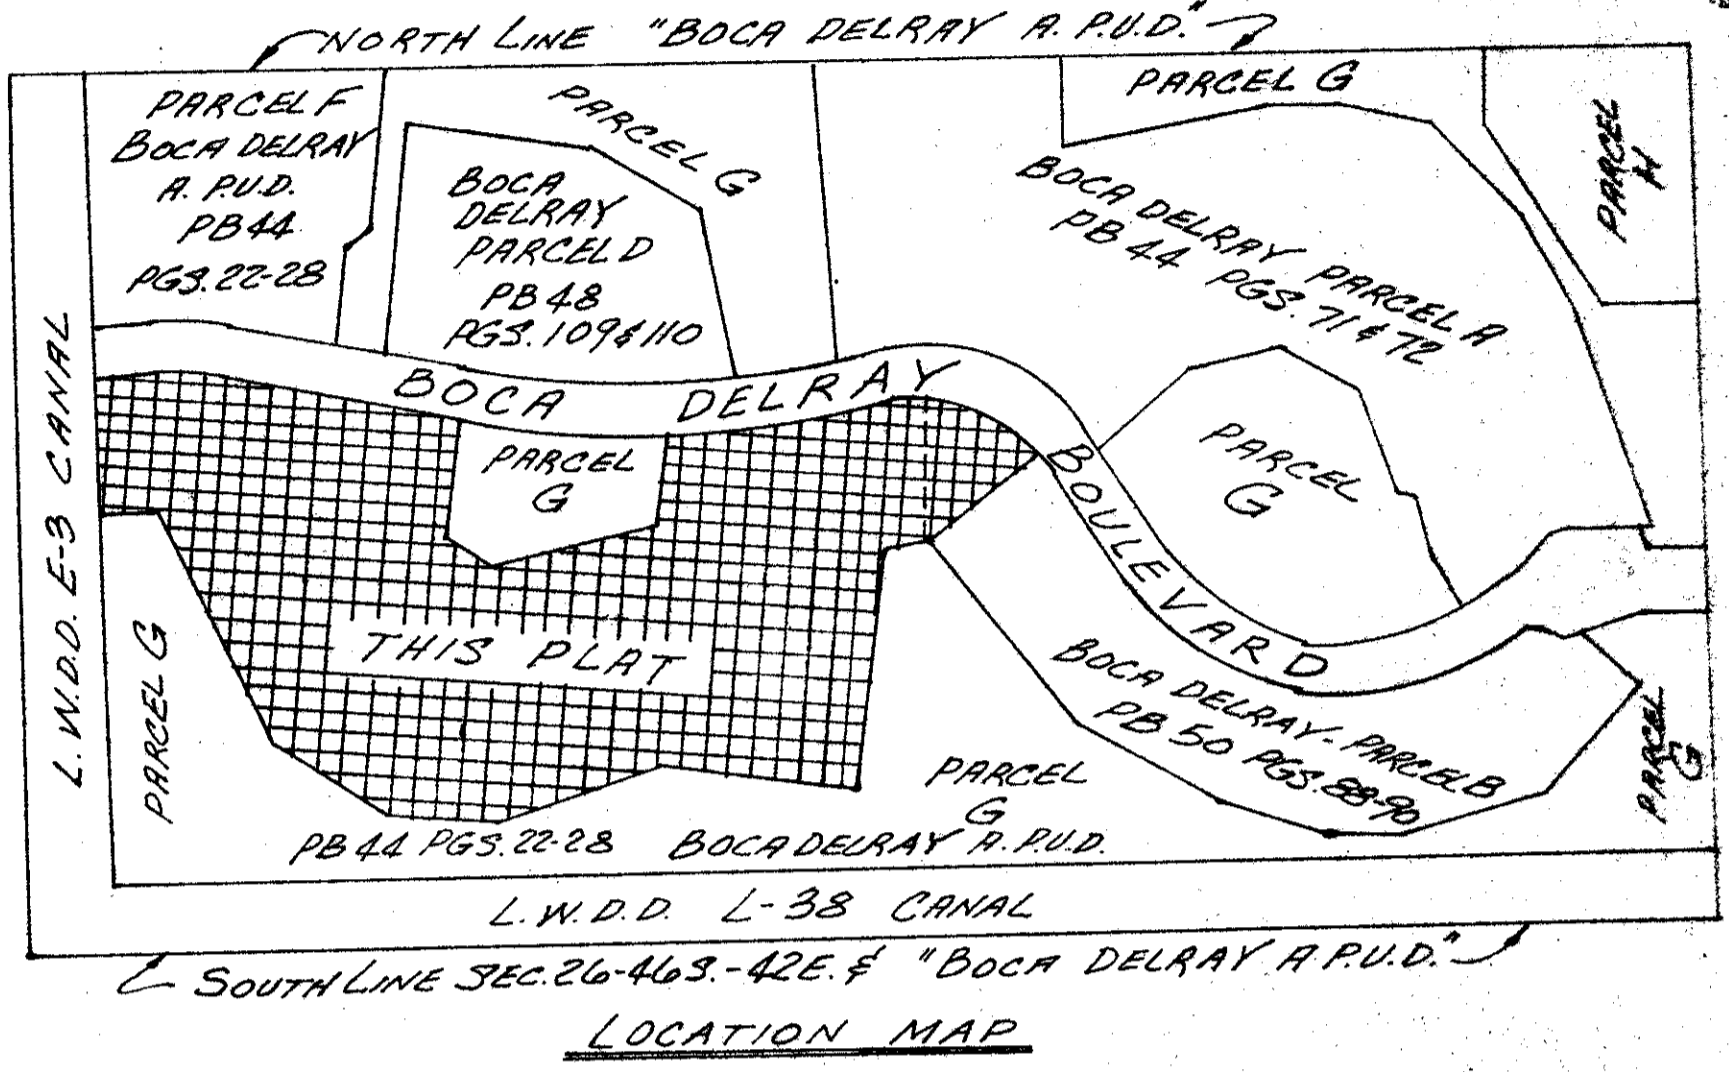 NORTH LINE "BOCA DELRAY A. P.U.D."
PARCEL F
BOCA DELRAY
A. P.U.D.
PB 44
PGS. 22-28
PARCEL G
BOCA
DELRAY
PARCEL D
PB 48
PGS. 109 & 110
PARCEL G
PARCEL
H
BOCA DELRAY PARCEL A
PB 44 PGS. 71 & 72
L. W.D.D. E-3 CANAL
BOCA DELRAY BOULEVARD
PARCEL
G
PARCEL
G
THIS PLAT
PARCEL G
BOCA DELRAY - PARCEL B
PB 50 PGS. 88-90
PARCEL
G
PARCEL
G
PB 44 PGS. 22-28 BOCA DELRAY A. P.U.D.
L. W. D. D. L-38 CANAL
SOUTH LINE SEC. 26-46S.-42E. & "BOCA DELRAY A. P.U.D."
LOCATION MAP